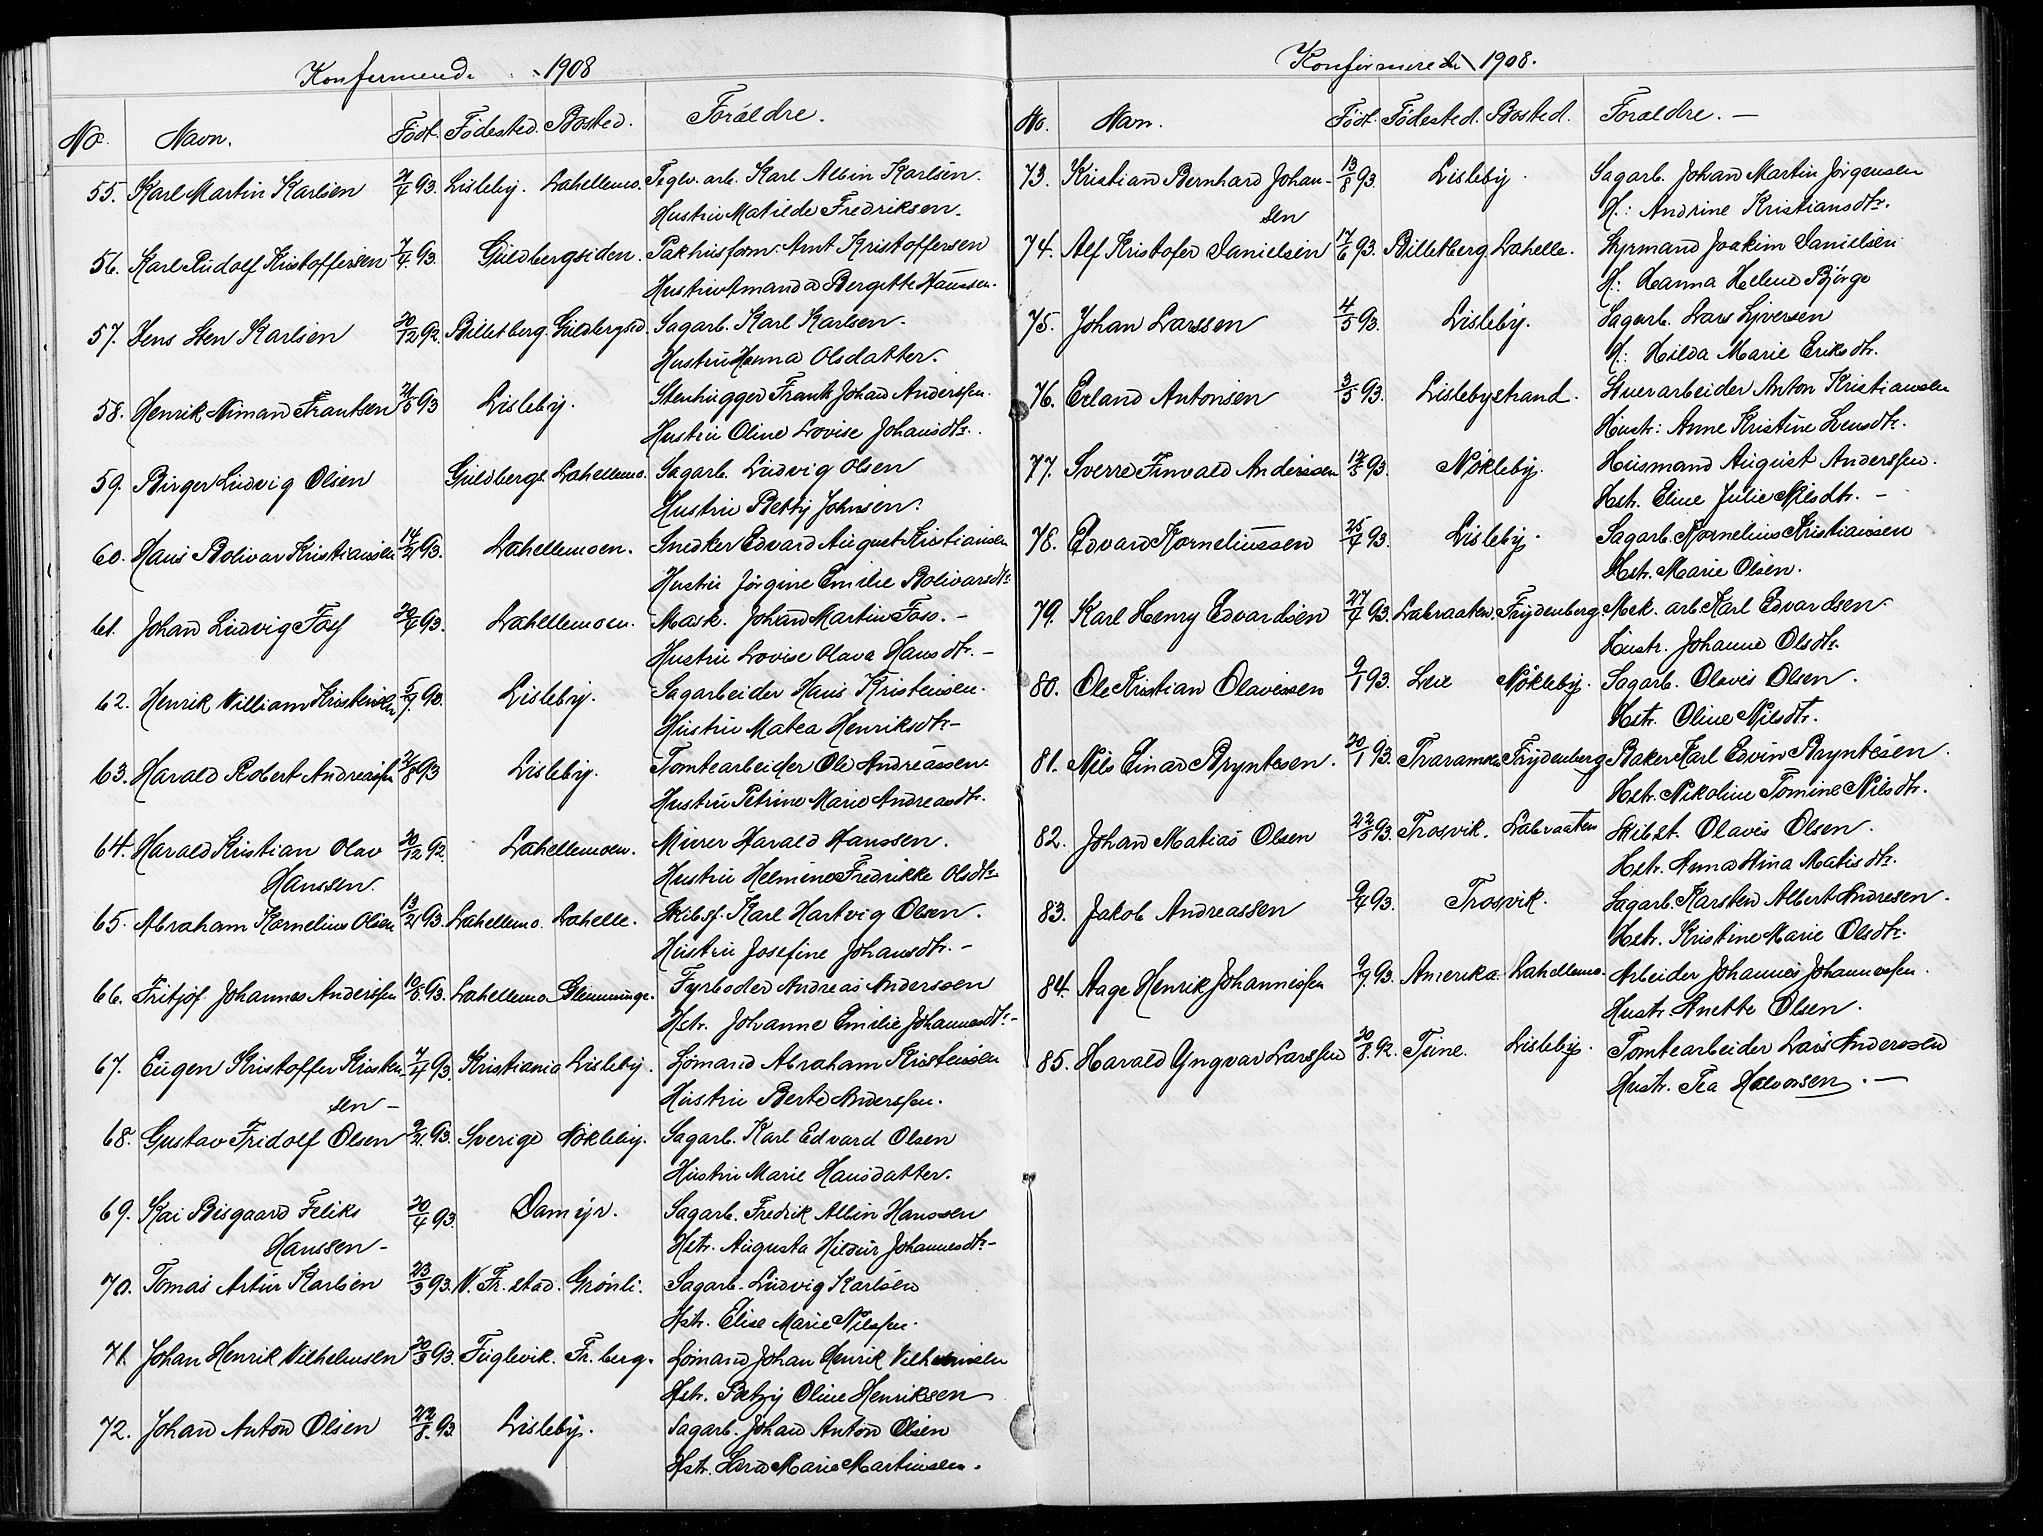 Konfirmerede 1908
No. Navn. Født. Fødested. Bosted. Forældre.
55. Karl Martin Karlsen 93. Lisleby. Lahellemo. Teglv. arb. Karl Albin Karlsen.
Hustru Matilde Fredriksen.
56. Karl Rudolf Kristoffersen 7/4 93. Guldbergsiden. Pakhusform. Arnt Kristoffersen
Hustru Amanda Bergitte Hanssen.
57. Jens Sten Karlsen 20/12 92. Billetberg Guldbergsid. Sagarb. Karl Karlsen.
Hustru Hanna Olsdatter.
58. Henrik Niman Frantsen 21/5 93 Lisleby. Stenhugger Frantz Johan Anderssen.
Hustru Oline Lovise Johansdtr.
59. Birger Ludvig Olsen Guldbergs. Lahellemo. Sagarb. Ludvig Olsen
Hustru Betty Johnsen.
60. Hans Bolivar Kristiansen 14/2 93. Lahellemoen. Snedker Edvard August Kristiansen
Hustru Jørgine Emilie Bolivarsdtr
61. Johan Ludvig Foss 93. Lahellemoen. Mask. Johan Martin Foss. -
Hustru Lovise Olava Hansdtr. -
62. Henrik Villiam Kristensen 5/9 93. Lisleby. Sagarbeider Hans Kristensen.
Hustru Matea Henriksdtr -
63. Harald Robert Andreassen 2/8 93 Lisleby. Tomtearbeider Ole Andreassen.
Hustru Petrine Marie Andreasdtr.
64. Harald Kristian Olav 20/12 92. Lahellemoen. Murer Harald Hanssen.
Hanssen. Hustru Helmine Fredrikke Olsdtr
65. Abraham Kornelius Olsen 13/2 93. Lahellemo. Lahelle. Skibsf. Karl Hartvig Olsen.
Hustru Josefine Johansdtr. -
66. Fritjof Johannes Anderssen 10/8 93. Lahellemo Glemminge. Fyrbøder Andreas Anderssen
Hstr. Johanne Emilie Johannesdtr. -
67. Eugen Kristoffer Kristen- 7/4 93. Kristiania Lisleby. Sømand Abraham Kristensen
sen - Hustru Berte Anderssen.
68. Gustav Fridolf Olsen 9/2 93. Sverige Nøkleby. Sagarb. Karl Edvard Olsen
Hustru Marie Hansdatter.
69. Kai Bisgaard Feliks 20/4 93. Damyr. Sagarb. Fredrik Albin Hanssen
Hanssen - Hstr. Augusta Hildur Johannesdtr -
70. Tomas Artur Karlsen 23/3 93. V. Fr.stad. Grønli. Sagarb. Ludvig Karlsen
Hstr. Elise Marie Nilssen.
71. Johan Henrik Vilhelmsen 20/3 93. Fuglevik. Fr.berg. Sømand Johan Henrik Vilhelmsen
Hstr. Betzy Oline Henriksen
72. Johan Anton Olsen 22/8 93 Lisleby. Sagarb. Johan Anton Olsen
Hstr. Marie Martinsen.
Konfirmerede 1908.
No. Navn. Født. Fødested. Bosted. Forældre. -
73. Kristian Bernhard Johan- 13/8 93. Lisleby. Sagarb. Johan Martin Jørgensen
sen H.: Andrine Kristiansdtr.
74. Alf Kristofer Danielsen 17/6 93. Billetberg. Lahelle. Styrmand Joakim Danielsen
H.: Hanna Helene Bjørge
75. Johan Larssen 4/5 93. Lisleby. Sagarb. Lars Syversen
H.: Hilda Marie Eriksdtr.
76. Erland Antonsen 3/5 93. Lislebystrand. Stuerarbeider Anton Kristiansen
Hustr: Anne Kristine Svensdtr.
77. Sverre Finvald Anderssen 12/8 93. Nøkleby. Husmand August Anderssen.
Hstr. Eline Julie Nilsdtr. -
78. Edvard Korneliussen 25/4 93. Lisleby. Sagarb. Kornelius Kristianssen
Hstr. Marie Olsen.
79. Karl Henry Edvardsen 27/4 93. Labraaten. Frydenberg. Mek. arb Karl Edvardsen.
Hustr. Johanne Olsdtr.
80. Ole Kristian Olavessen 9/1 93. Leie Nøkleby. Sagarb. Olavis Olsen.
Hstr. Oline Nilsdtr.
81. Nils Einar Bryntesen. 20/1 93. Traramsla Frydenberg Baker Karl Edvin Bryntesen.
Hstr. Nikoline Tomine Nilsdtr.
82. Johan Matias Olsen 22/5 93. Trosvik. Labraaten Skibst. Olavis Olsen.
Hstr. Anna Stina Matisdtr.
83. Jakob Andreassen 9/4 93. Trosvik. Sagarb. Karsten Albert Andresen.
Hstr. Kristine Marie Olsdtr.
84. Aage Henrik Johannessen 9/9 93. Amerika Lahellemo. Arbeider Johannes Johannessen.
Hustr. Anette Olsen.
85. Harald Yngvar Larssen 30/8 92. Tune. Lisleby. Tomtearbeider Lars Anderssen
Hustr. Tea Halvorsen. -